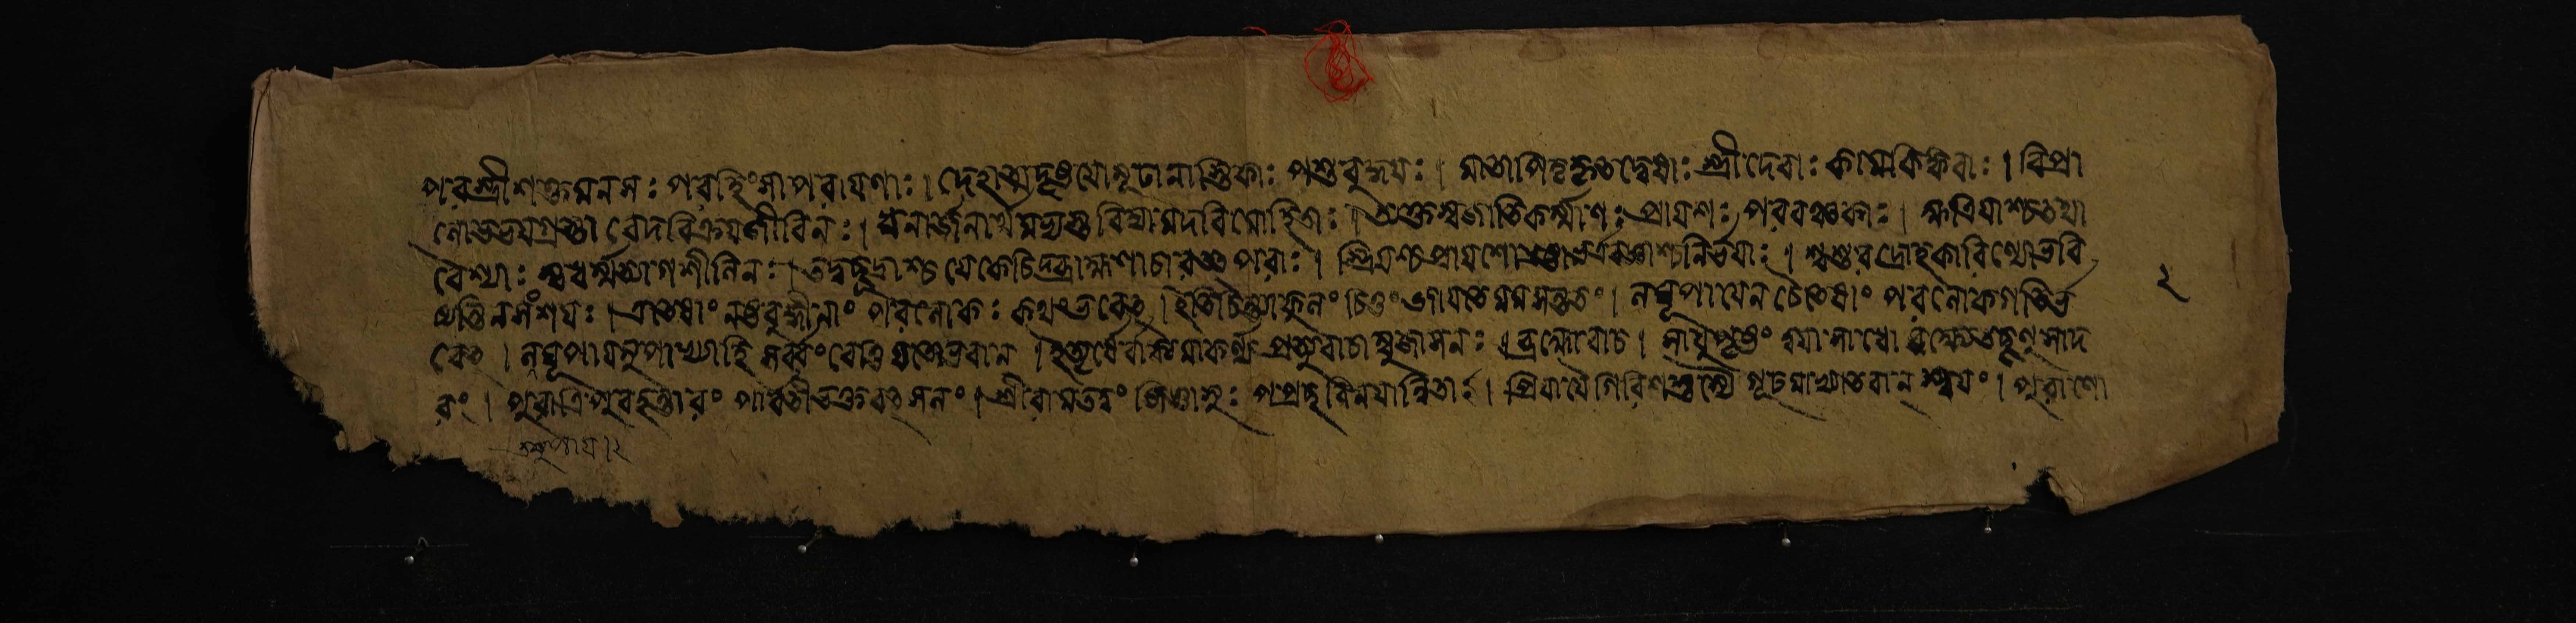 পরস্ত্রীশক্তমনসঃ পরহিংসাপরায়ণাঃ । দেহাত্মদৃষ্টয়ো মূঢা নাস্তিকাঃ পশুবুদ্ধয়ঃ । মাতাপিতৃকৃতদ্বেষাঃ স্ত্রীদেবাঃ কামকিঙ্কিরাঃ । বিপ্রা
লোভভয়গ্রস্তা বেদবিক্রয়জীবিনঃ । ধনার্জনার্থমভ্যস্তবিদ্যামদবিমোহিতাঃ । ত্যক্তস্বজাতিকর্ম্মাণঃ প্রায়শঃ পরবঞ্চকাঃ । ক্ষত্রিয়াশ্চ তথা
বৈশ্যাঃ স্বধর্ম্মত্যাগশীলিনঃ । তদ্বচ্ছূদ্রাশ্চ যে কেচিদ্ব্রাহ্মণাচারতৎপরাঃ । স্ত্রিয়শ্চ প্রায়শো ভ্রষ্টা ভর্ত্রবজ্ঞাশ্চ নির্ভয়াঃ । শ্বশুরদ্রোহকারিণ্যো ভবি
ষ্যন্তি ন সংশয়ঃ । এতেষাং নষ্টবুদ্ধীনাং পরলোকঃ কথং ভবেৎ । ইতি চিন্তাকুলং চিত্তং জায়তে মম সন্ততং । লঘূপায়েন চৈতেষাং পরলোকগতির্ভ
বেৎ । লঘূপায়মুপাখ্যাহি সর্ব্বং বেত্তি যতো ভবান্ । ইত্যৃষের্বাক্যমাকর্ণ্য প্রত্যুবাচাম্বুজাসনঃ । ব্রহ্মোবাচ । সাধু পৃষ্টং ত্বয়া সাধো বক্ষ্যে তচ্ছৃণু সাদ
রং । পুরা ত্রিপুরহন্তারং পার্ব্বতী ভক্তবৎসলং । শ্রীরামতত্ত্বং জিজ্ঞাসুঃ পপ্রচ্ছ বিনয়ান্বিতা । প্রিয়ায়ৈ গিরিশস্তস্যৈ গূঢমাখ্যাতবান্ স্বয়ং । পুরাণো
২